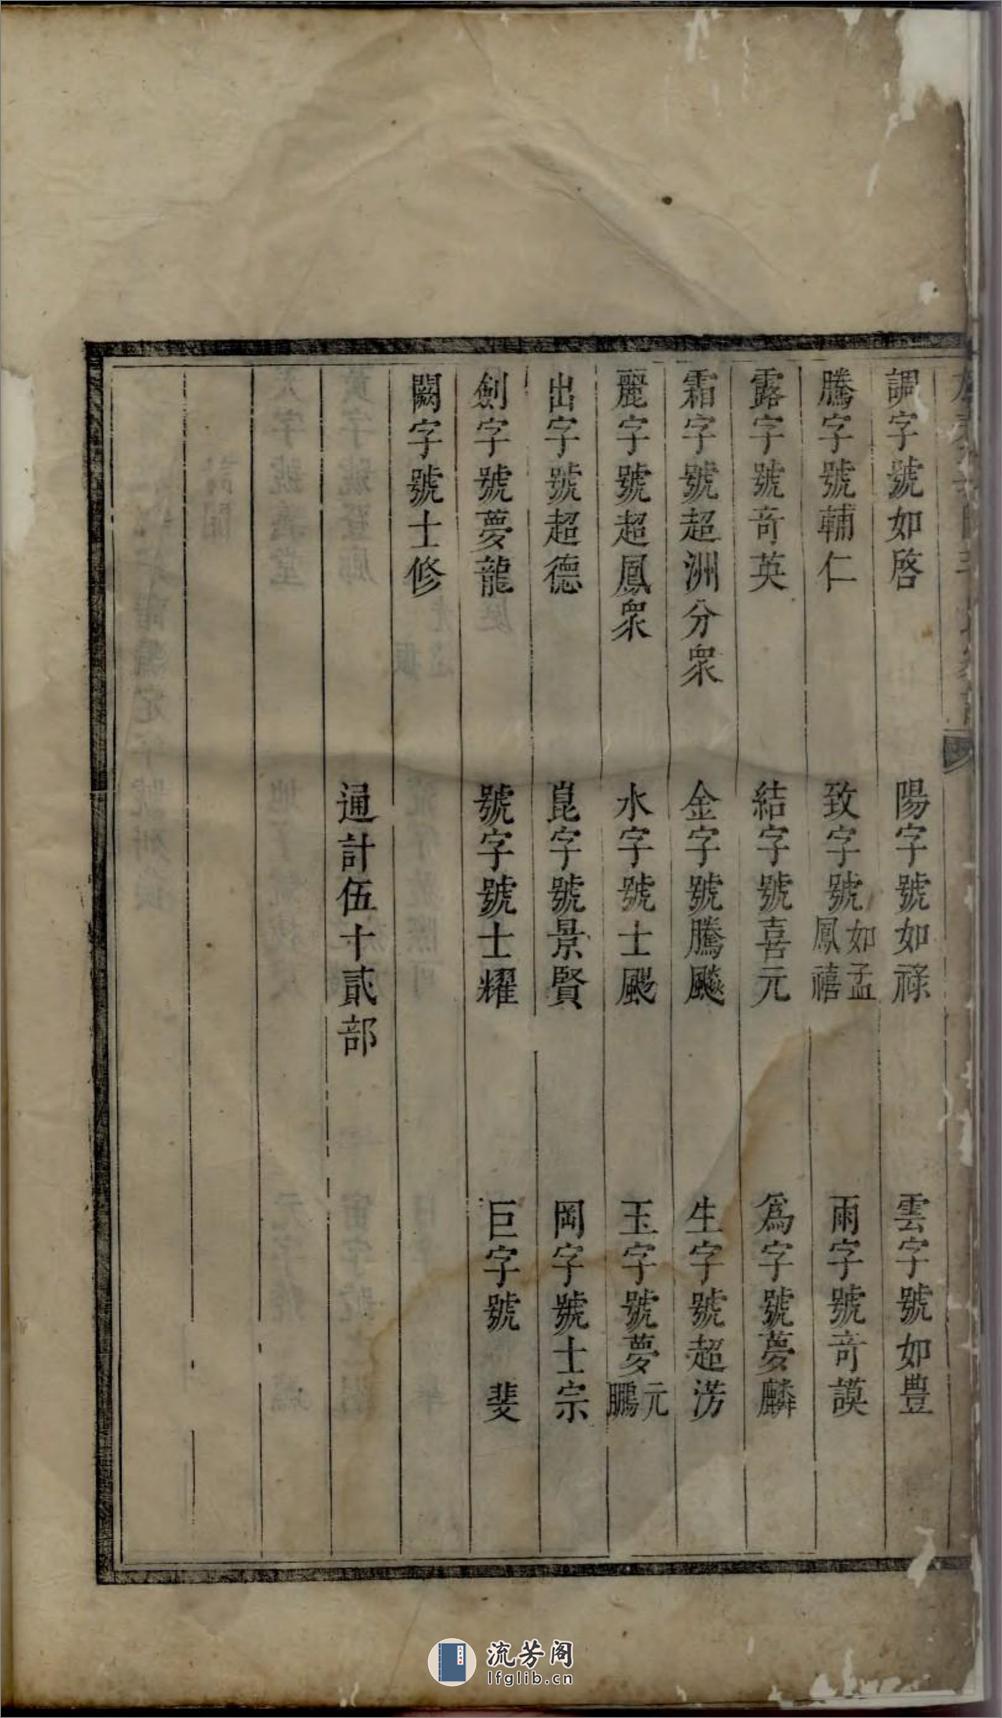 調字號如啓　陽字號如祿　雲字號如豊
騰字號輔仁　致字號如孟鳳禧　雨字號奇謨
露字號奇英　結字號喜元　為字號夢麟
霜字號超洲分衆　金字號騰飈　生字號超淓
麗字號超鳳衆　水字號士颺　玉字號夢元鵬
出字號超德　崑字號景賢　岡字號士宗
劍字號夢龍　號字號士耀　巨字號　斐
闕字號士修
通計伍十貳部
流芳阁
lfglib.cn